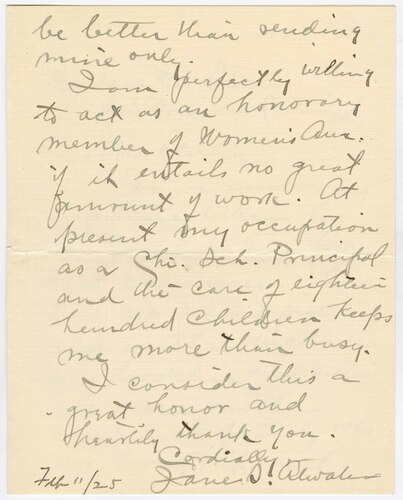 be better than sending
mine only.
I am perfectly willing
to act as an honorary
member of Women's Aux.
if it entails no great
amount of work. At
present my occupation
as a Chi. Sch. Principal
and the care of eighteen
hundred children keeps
me more than busy.
I consider this a
great honor and
heartily thank you.
Cordially
Jane S. Atwater
Feb 11/25